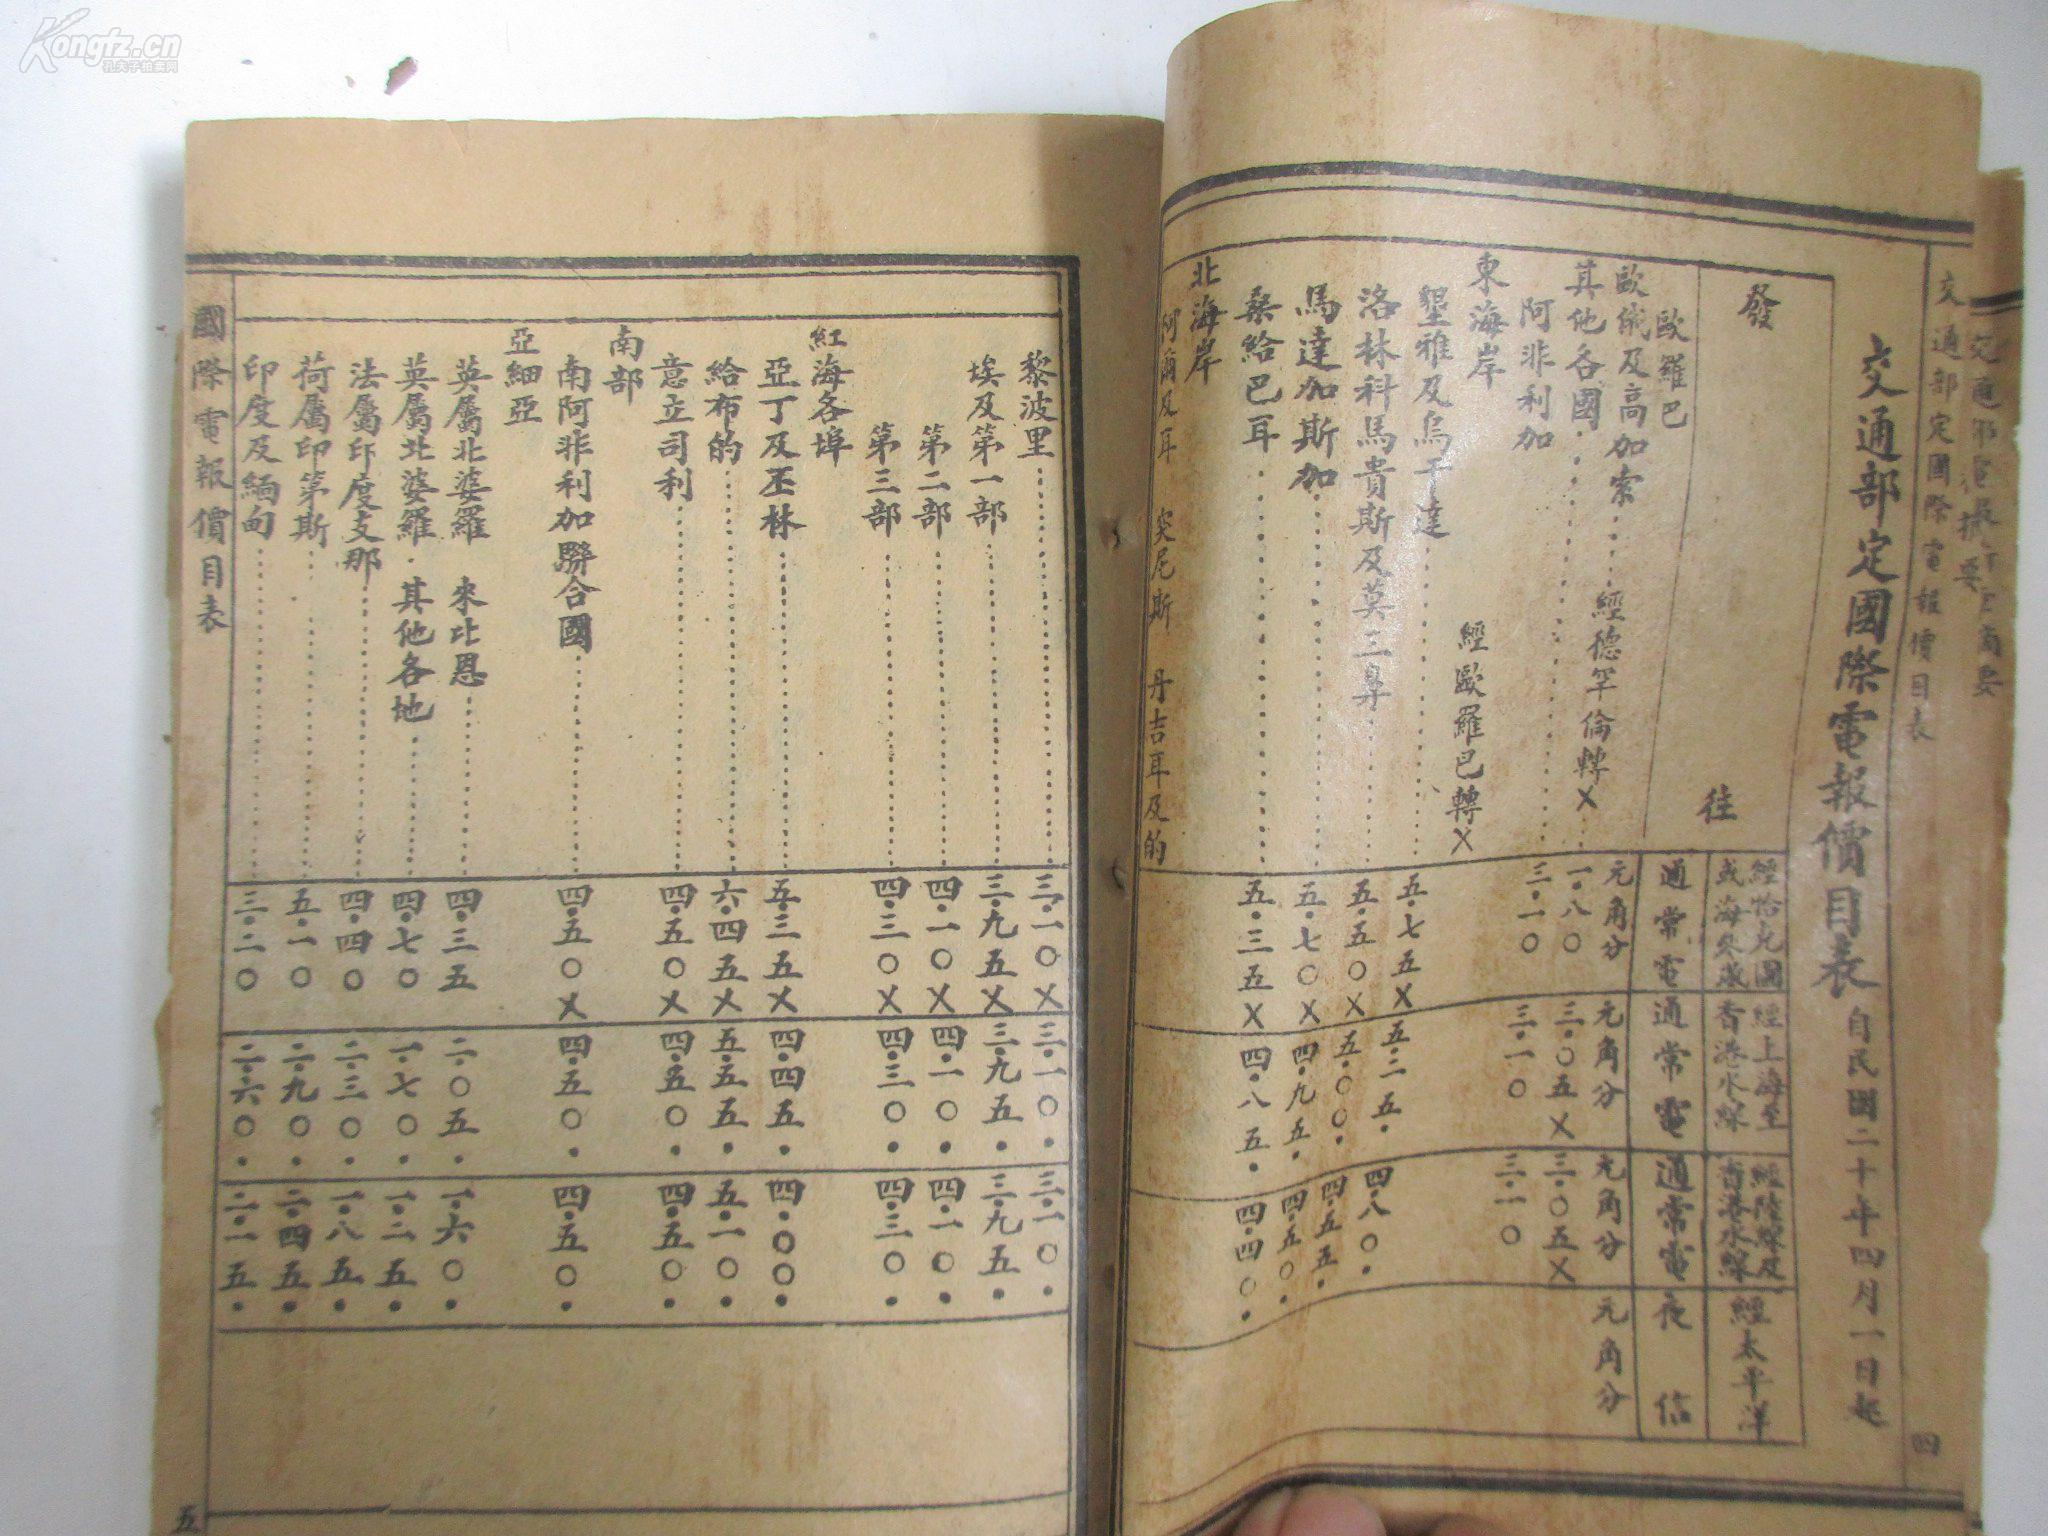 Kongfz.cn
孔夫子拍卖网
交通部定國際電報價目表
四
交通部定國際電報價目表 自民國二十年四月一日起
發 往
經恰克圖或海參崴 經上海至香港水線 經陸線及香港水線 經太平洋
通常電 通常電 通常電 夜信
歐羅巴 元角分 元角分 元角分 元角分
歐俄及高加索 一·八〇 三·〇五X 三·〇五X
其他各國 經德罕倫轉X 三·一〇 三·一〇 三·一〇
阿非利加
東海岸 經歐羅巴轉X
墾雅及烏干達 五·七五X 五·二五· 四·八〇·
洛林科馬貴斯及莫三鼻 五·五〇X 五·〇〇· 四·五五·
馬達加斯加 五·七〇X 四·九五· 四·五〇·
桑給巴耳 五·三五X 四·八五· 四·四〇·
北海岸
阿爾及耳 突尼斯 丹吉耳及的
黎波里 三·一〇X 三·一〇· 三·一〇·
埃及第一部 三·九五X 三·九五· 三·九五·
第二部 四·一〇X 四·一〇· 四·一〇·
第三部 四·三〇X 四·三〇· 四·三〇·
紅海各埠
亞丁及丕林 五·三五X 四·四五· 四·〇〇·
給布的 六·四五X 五·五五· 五·一〇·
意立司利 四·五〇X 四·五〇· 四·五〇·
南部
南阿非利加聯合國 四·五〇X 四·五〇· 四·五〇·
亞細亞
英屬北婆羅 來比恩 四·三五 二·〇五· 一·六〇·
英屬北婆羅 其他各地 四·七〇 一·七〇· 一·二五·
法屬印度支那 四·四〇 二·三〇· 一·八五·
荷屬印第斯 五·一〇 二·九〇· 二·四五·
印度及緬甸 三·二〇 二·六〇· 二·一五·
國際電報價目表
五